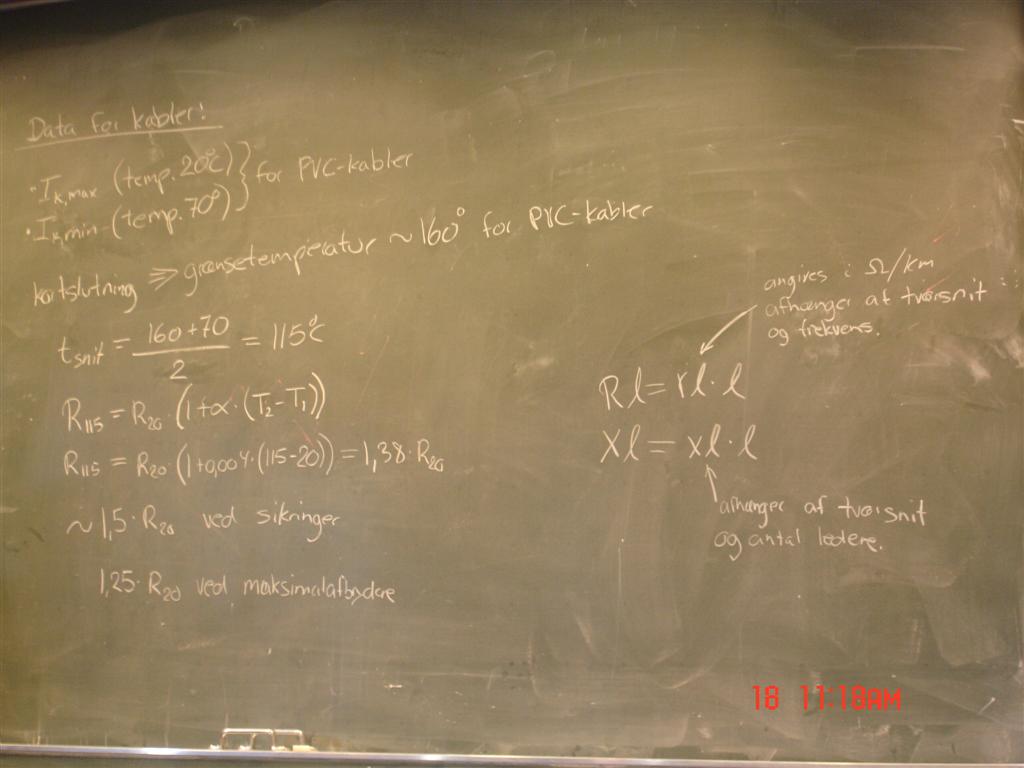 Data for kabler!
• I k,max (temp. 20°C) } for PVC-kabler
• I k,min (temp. 70°)
kortslutning ⇒ grænsetemperatur ~ 160° for PVC-kabler
t snit = (160+70)/2 = 115°C
R₁₁₅ = R₂₀ (1+α·(T₂-T₁))
R₁₁₅ = R₂₀ (1+0,004·(115-20)) = 1,38·R₂₀
~ 1,5·R₂₀ ved sikringer
1,25·R₂₀ ved maksimalafbrydere
angives i Ω/km
afhænger af tværsnit
og frekvens.
Rl = rl·l
Xl = xl·l
afhænger af tværsnit
og antal ledere.
18 11:18AM